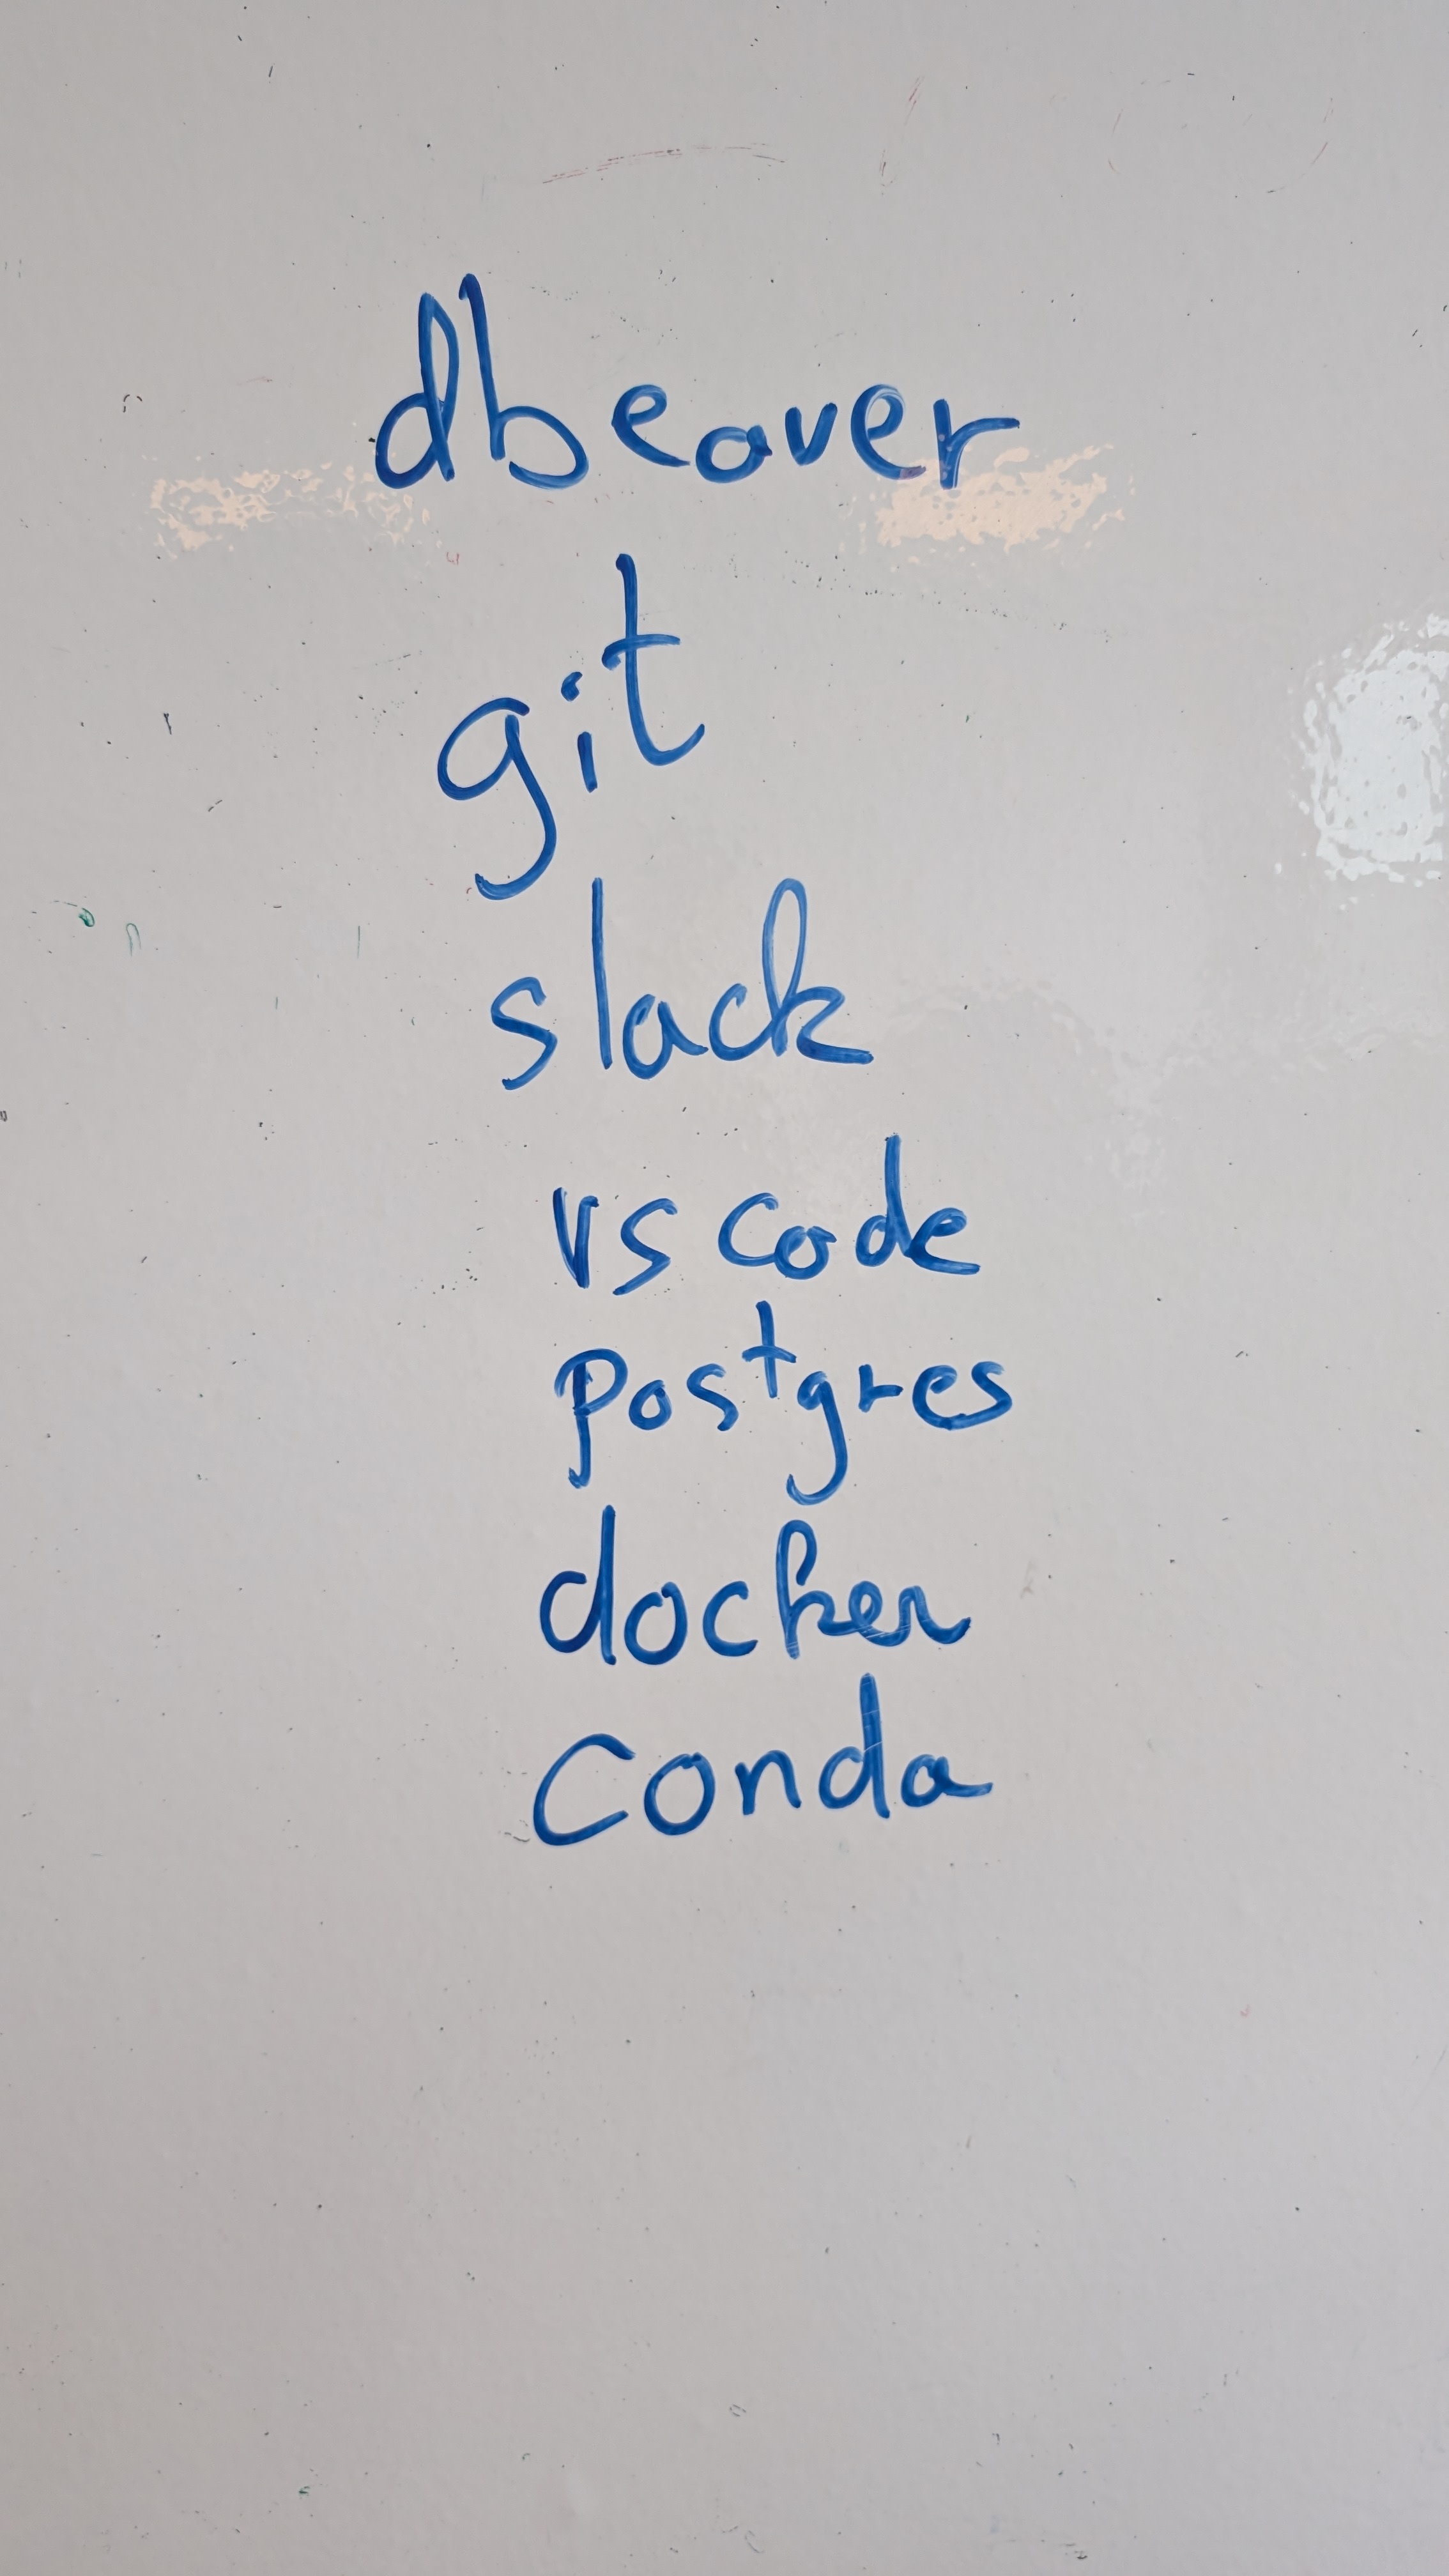 dbeaver
git
slack
vs code
postgres
docker
conda